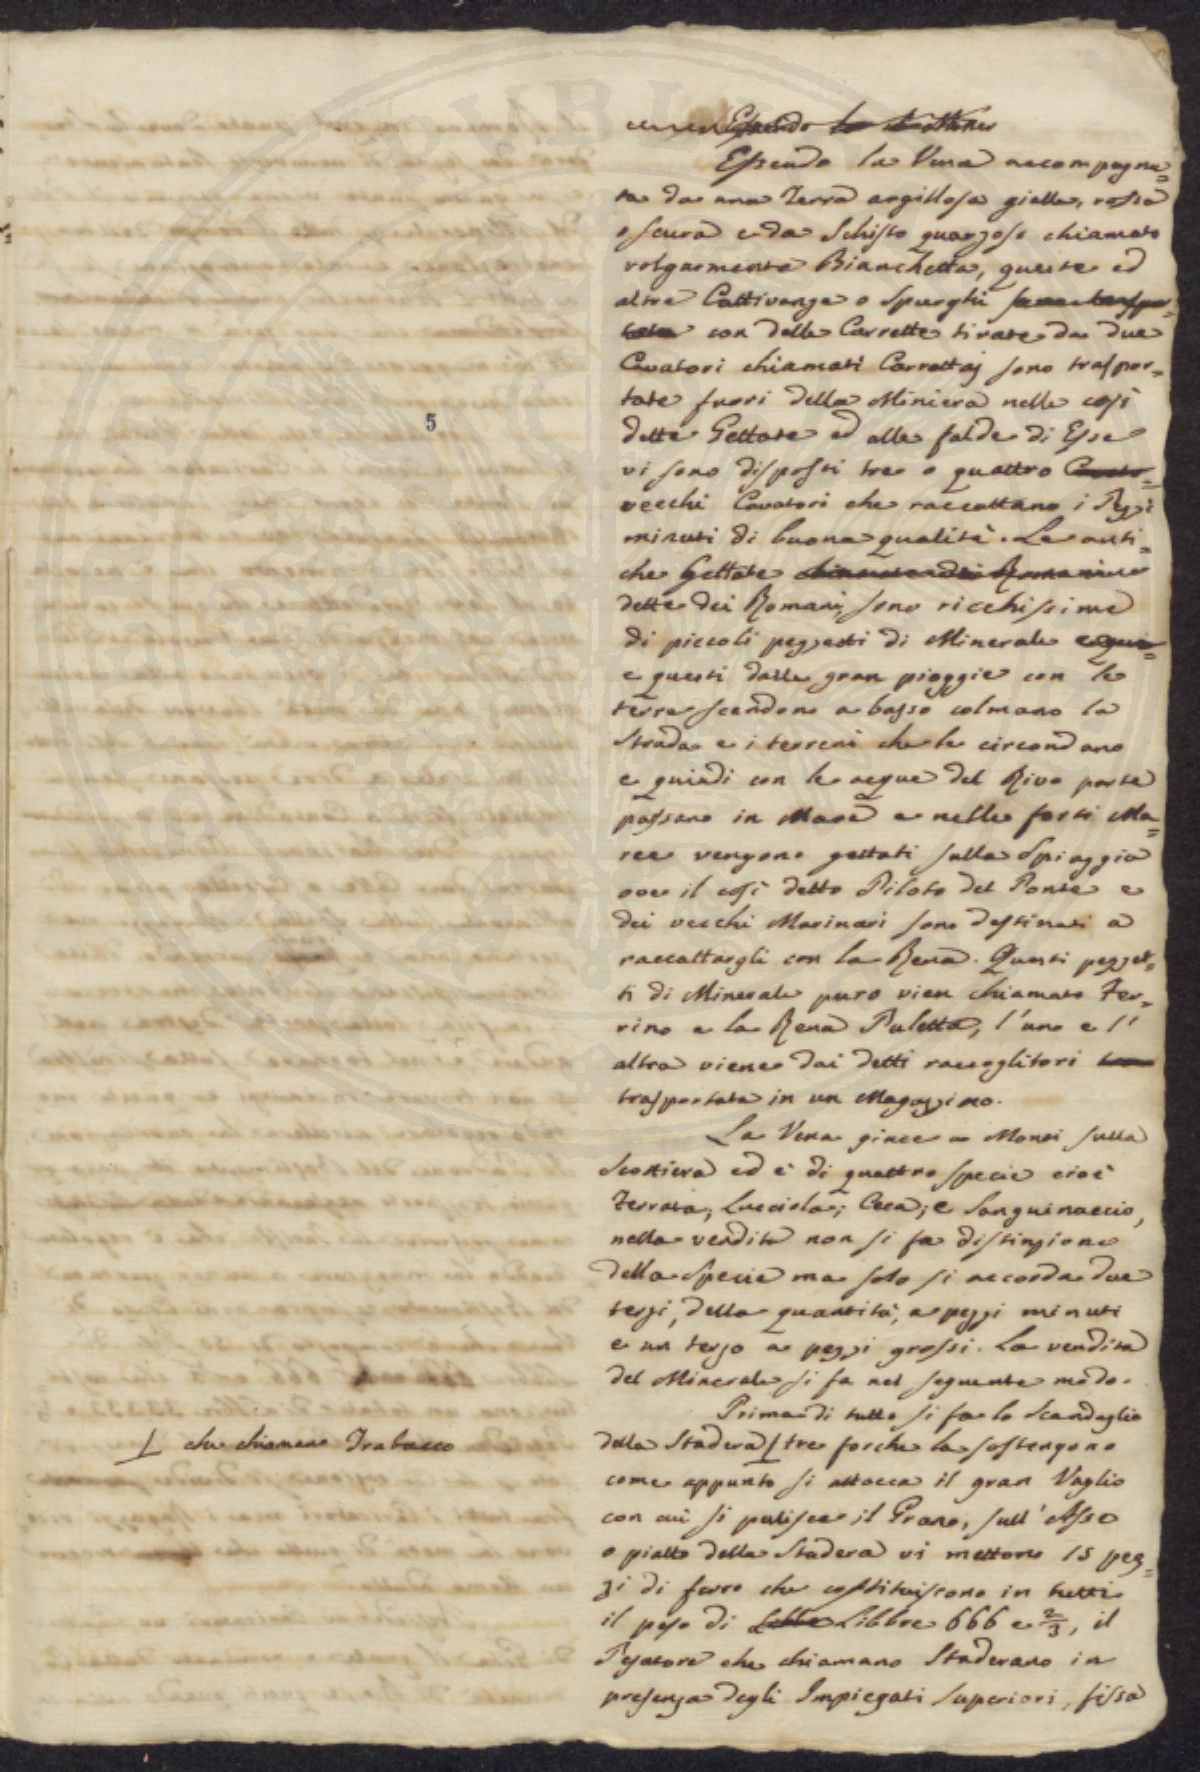 Essendo
Essendo la Vena accompagna=
ta da una Terra argillosa gialla, rossa
o scura e da Schisto quarzoso chiamato
volgarmente Bianchetta, queste ed
altre Cattivanze o Spurghi sono traspor=
tate con delle Carrette tirate da due
Cavatori chiamati Carrettaj sono traspor=
tate fuori della Miniera nelle così
dette Gettate ed alle falde di Esse
vi sono disposti tre o quattro Cavato=
vecchi Cavatori che raccattano i Pezzi
minuti di buona qualità. Le anti=
che Gettate chiamate dei Romani
dette dei Romani, sono ricchissime
di piccoli pezzetti di Minerale e que=
e questi dalle gran pioggie con le
terre scendono a basso colmano la
Strada e i terreni che le circondano
e quindi con le acque del Rivo parte
passano in Mare e nelle forti Ma=
ree vengono gettati sulla Spiaggia
ove il così detto Piloto del Ponte e
dei vecchi Marinari sono destinati a
raccattargli con la Rena. Questi pezzet=
ti di Minerale puro vien chiamato Fer=
rino e la Rena Puletta, l'uno e l'
altra viene dai detti raccoglitori
trasportata in un Magazzino.
La Vena giace a Monti sulla
Scortiera ed è di quattro specie cioè
Ferrata; Lucciola; Ceca; e Sanguinaccio,
nella vendita non si fa distinzione
della Specie ma solo si accorda due
terzi, della quantità, a pezzi minuti
e un terzo a pezzi grossi. La vendita
del Minerale si fa nel seguente modo.
Prima di tutto si fa lo Scandaglio
della Stadera tre forche la sostengono
che chiamano Trabacco
come appunto si attacca il gran Vaglio
con cui si pulisce il Grano, sull'Asse
o piatto della Stadera vi mettono 15 pez=
zi di ferro che costituiscono in tutti
il peso di Libbre Libbre 666 e 2/3, il
Pesatore che chiamano Staderano in
presenza degli Impiegati Superiori, fissa
5